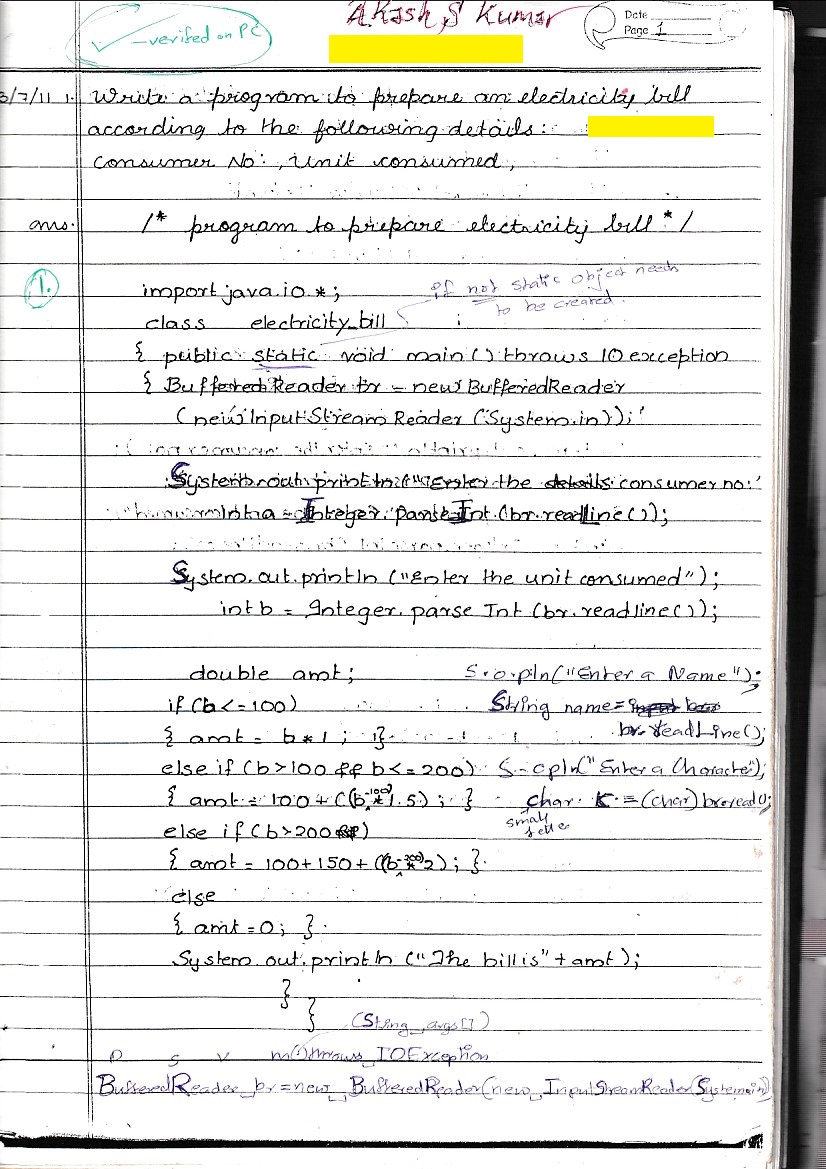 Akash S Kumar
Date
Page 1
✓ – verified on PC
3/7/11 1. Write a program to prepare an electricity bill
according to the following details:
Consumer No:, Unit consumed,
ans. /* program to prepare electricity bill */
1.
if not static object needs
to be created.
import java.io.*;
class electricity_bill
{ public static void main() throws IO exception
{ Buffered Reader br = new BufferedReader
(new InputStream Reader (System.in));
System.out.println("Enter the details consumer no:"
int a = Integer.parseInt (br.readLine());
System.out.println ("Enter the unit consumed");
int b = Integer.parse Int (br.readline());
double amt; S.o.pln("Enter a Name");
if (b<=100) String name=
{ amt = b*1; } br.readLine();
else if (b>100 && b<=200) S-opln("Enter a Character");
{ amt = 100+((b-100)*1.5); } char K = (char)br.read();
small
letter
else if (b>200)
{ amt = 100+150+((b-200)*2); }
else
{ amt=0; }
System.out.println ("The bill is"+amt);
}
}
(String_args[])
P S V m() throws_IOException
BufferedReader_br=new_BufferedReader(new_InputStreamReader(System.in)